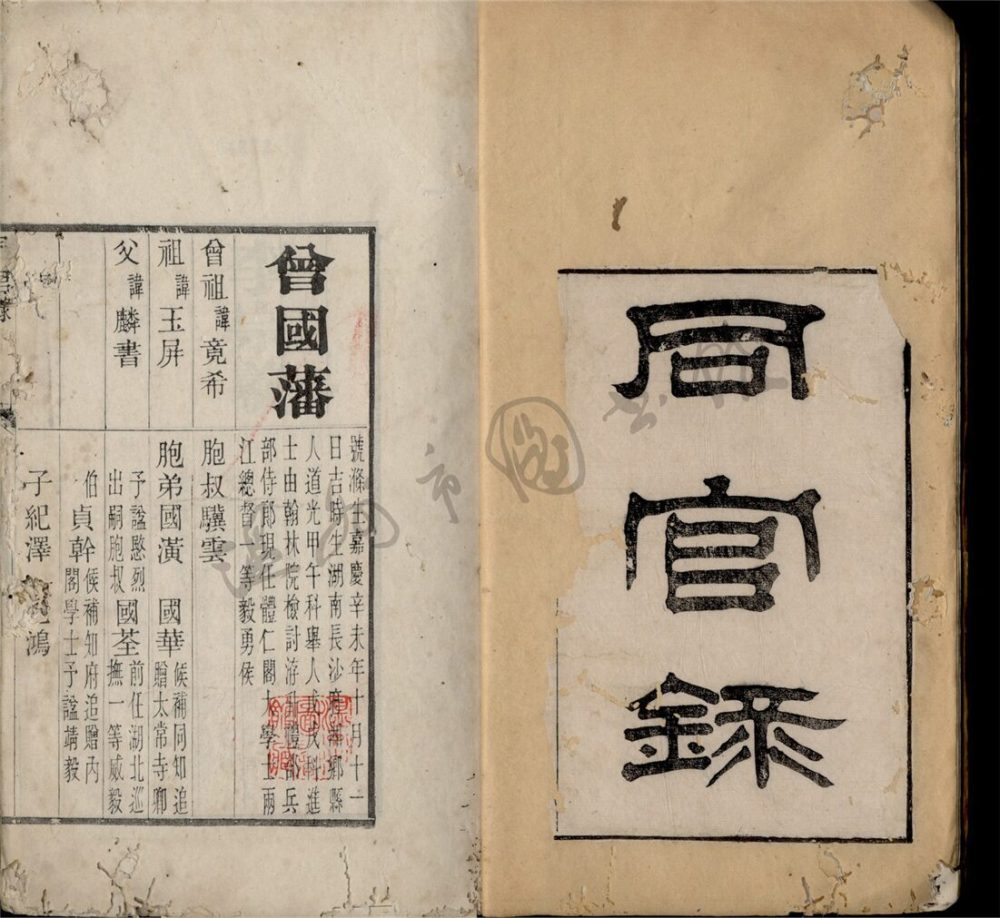 同官錄
曾國藩
號滌生嘉慶辛未年十月十一
日吉時生湖南長沙府鄉縣
人道光甲午科舉人戊戌科進
士由翰林院檢討游禮部兵
部侍郎現任體仁閣大學士兩
江總督一等毅勇侯
曾祖諱竟希
胞叔驥雲
祖諱玉屏
胞弟國潢 國華候補同知追贈太常寺卿
父諱麟書
予諡愍烈出嗣胞叔 國荃前任湖北巡撫一等威毅
伯 貞幹候補知府追贈內閣學士予諡靖毅
子紀澤 紀鴻